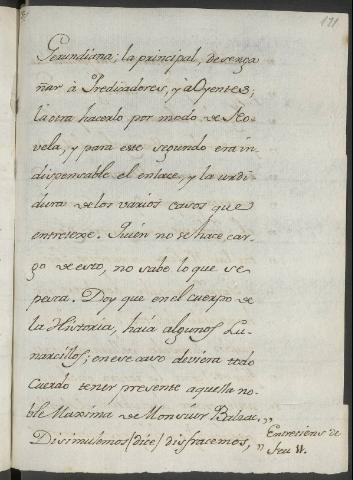 121
Gerundiana; la principal, desenga
ñar à Predicadores, y à Oyentes;
la otra hacerlo por modo de No-
vela, y para este segundo era in
dispensable el enlace, y la urdi-
dura de los varios casos que
entretexe. Quién no se hace car-
go de esto, no sabe lo que se
pesca. Doy que en el cuerpo de
la Historia, haia algunos Lu-
narcillos; en ese caso deviera todo
Cuerdo tener presente aquella no-
ble Maxima de Monsieur Balzac, „
Disimulemos (dice) disfracemos, „
Entretiens de
feu M.